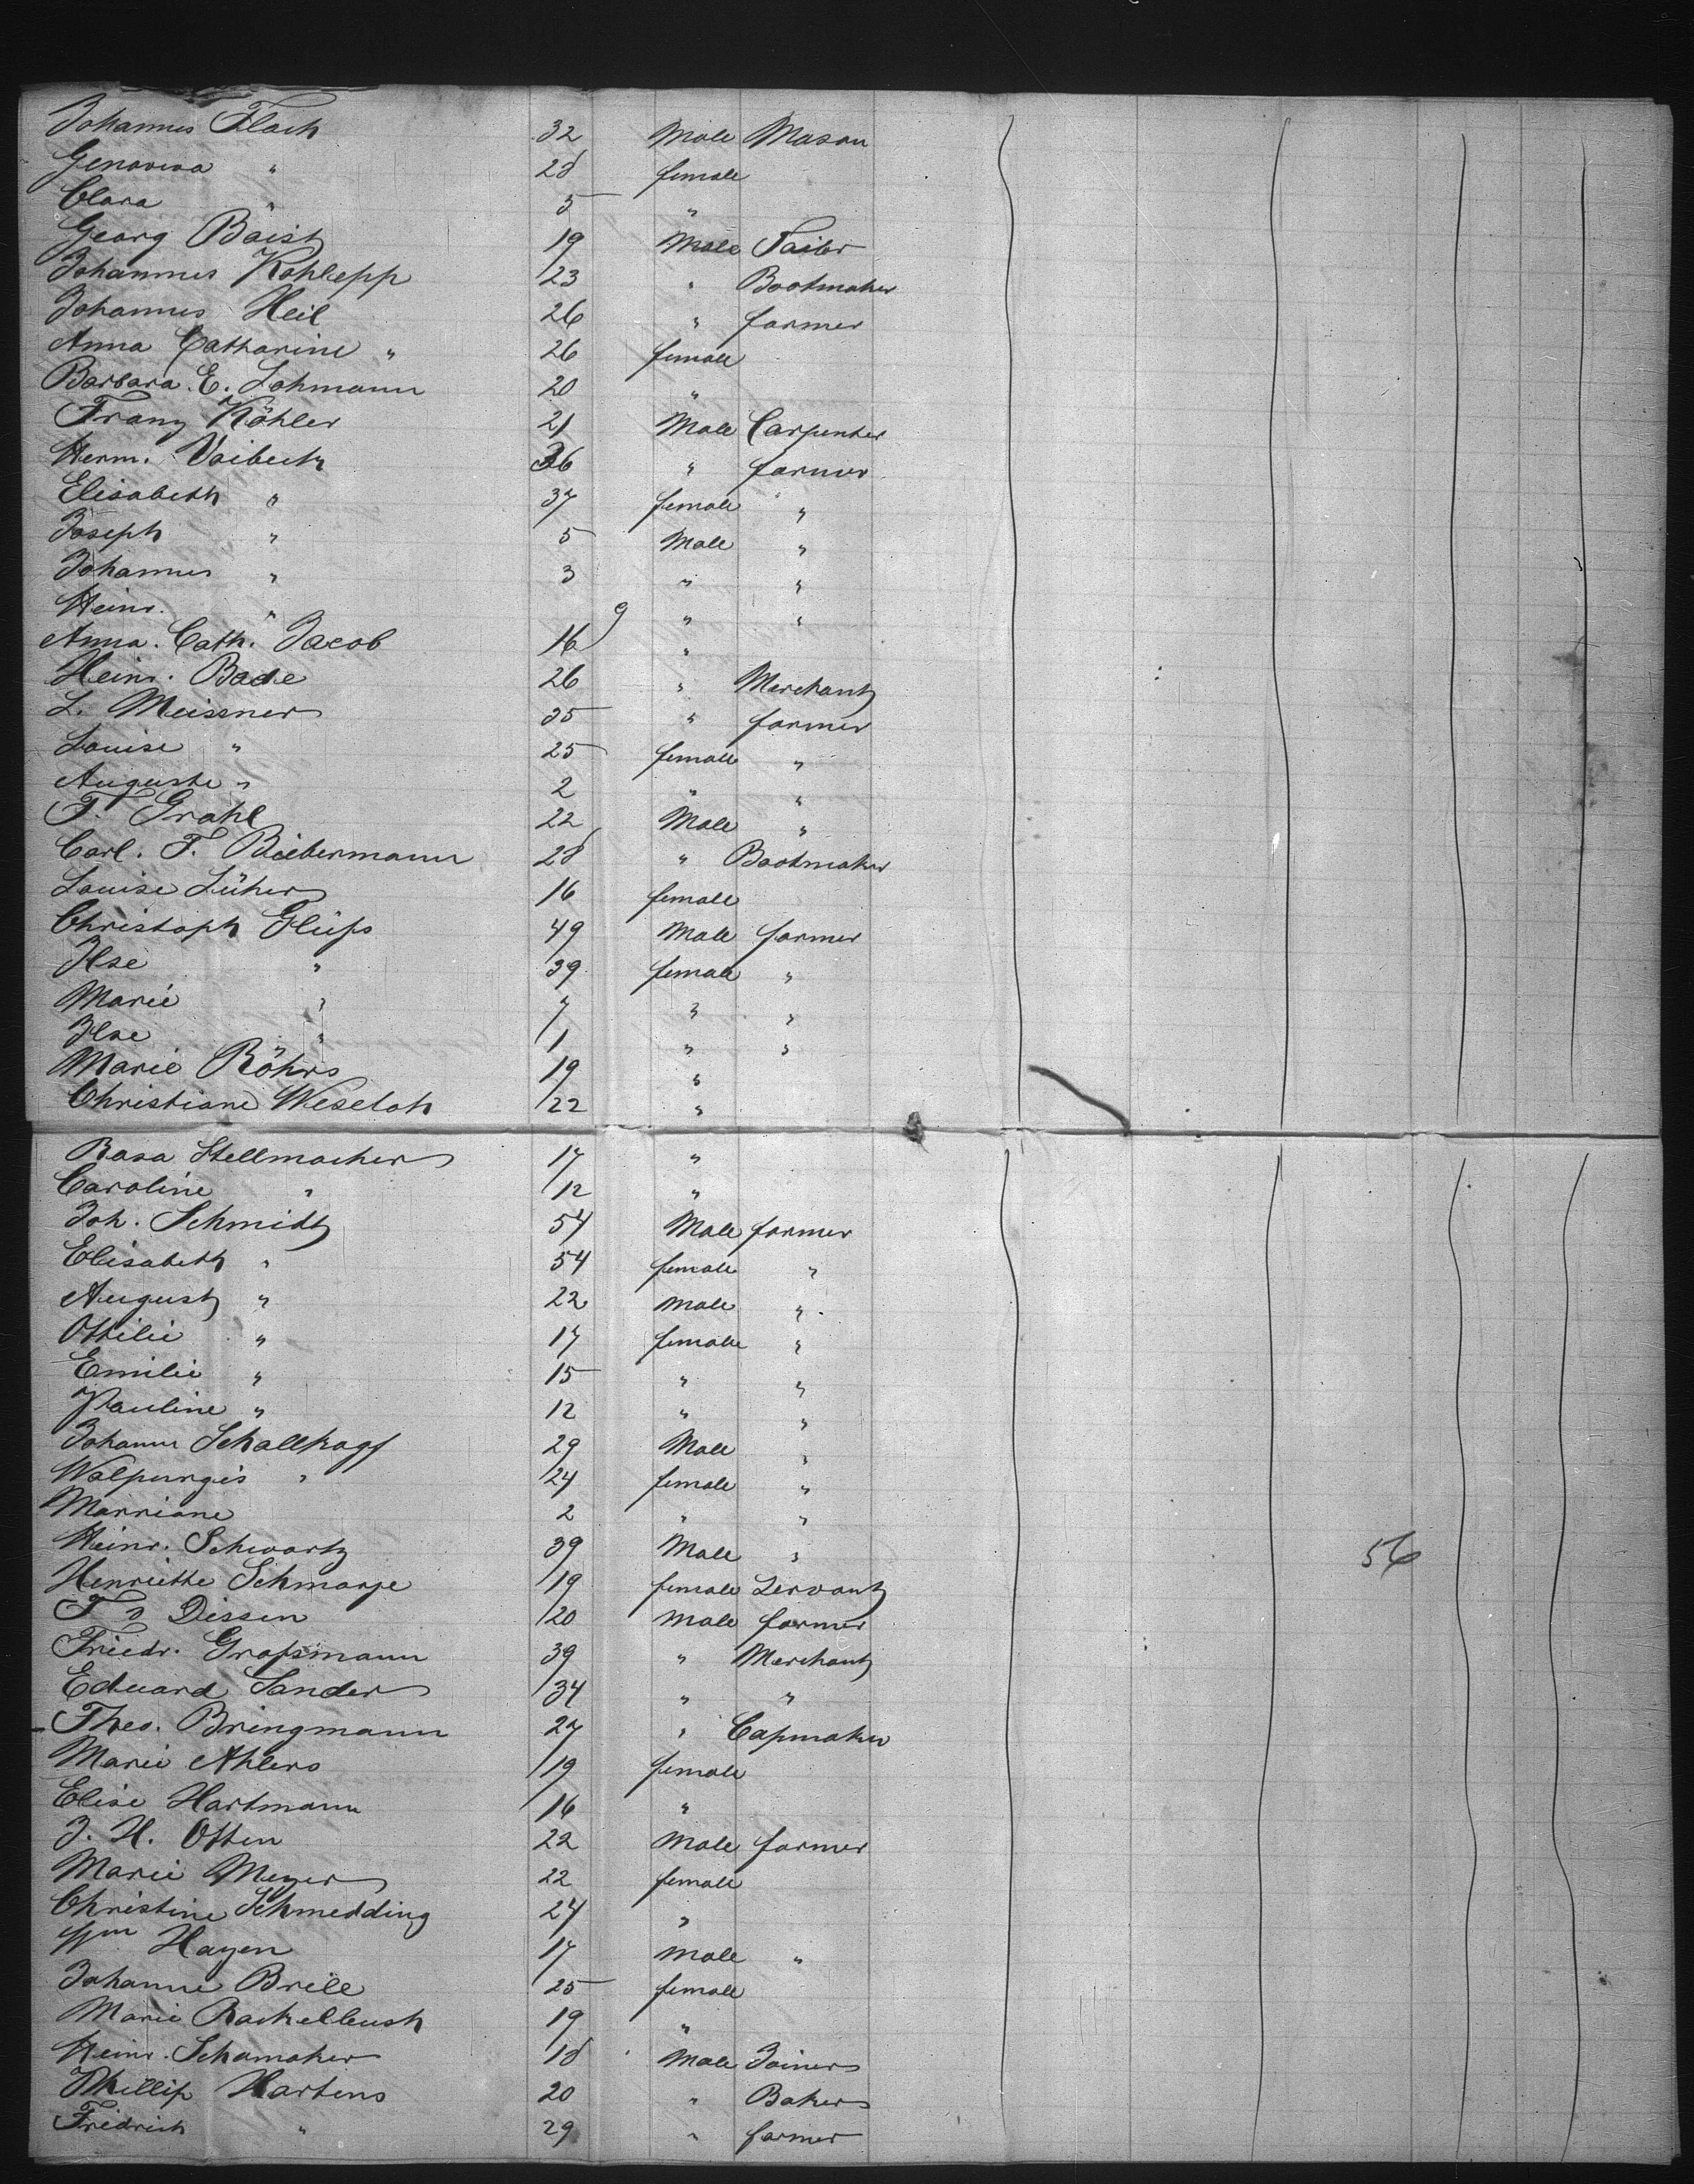 Johannes Flach 32 Male Mason
Genoveva " 28 female
Clara " 5 "
Georg Baist 19 Male Tailor
Johannes Kohlepp 23 " Bootmaker
Johannes Heil 26 " farmer
Anna Catharine " 26 female
Barbara E. Lohmann 20 "
Franz Köhler 21 Male Carpenter
Herm. 36 " farmer
Elisabeth " 37 female "
Joseph " 5 Male "
Johannes " 3 " "
Heinr. " 9 " "
Anna. Cath. Jacob 16 "
Heinr. Bade 26 " Merchant
L. Meissner 35 " farmer
Louise " 25 female "
Auguste " 2 " "
F. Grahl 22 Male "
Carl. F. Biebermann 28 " Bootmaker
Louise Lühers 16 female
Christoph 49 Male farmer
Ilse " 39 female "
Marie " 7 " "
Ilse " 1 " "
Marie Röhrs 19 "
Christiane Weseloh 22 "
Rosa Stellmacher 17 "
Caroline " 12 "
Joh. Schmidt 54 Male farmer
Elisabeth " 54 female "
August " 22 Male "
Ottilie " 17 female "
Emilie " 15 " "
Pauline " 12 " "
Johann Schallkopf 29 Male "
Walpurgis " 24 female "
Marriane 2 " "
Heinr. Schwartz 39 Male " 56
Henriette Schmarje 19 female Servant
F Dissen 20 Male farmer
Friedr. Graßmann 39 " Merchant
Eduard Sander 34 " "
Theo. Bringmann 27 " Capmaker
Marie Ahlers 19 female
Elise Hartmann 16 "
J. H. Otten 22 Male farmer
Marie Meyer 22 female
Christine Schmedding 24 "
Wm Hayen 17 Male "
Johanne Brill 25 female
Marie 19 "
Heinr. Schamaker 18 Male Joiner
Phillip Hartens 20 " Baker
Fridrich " 29 " farmer